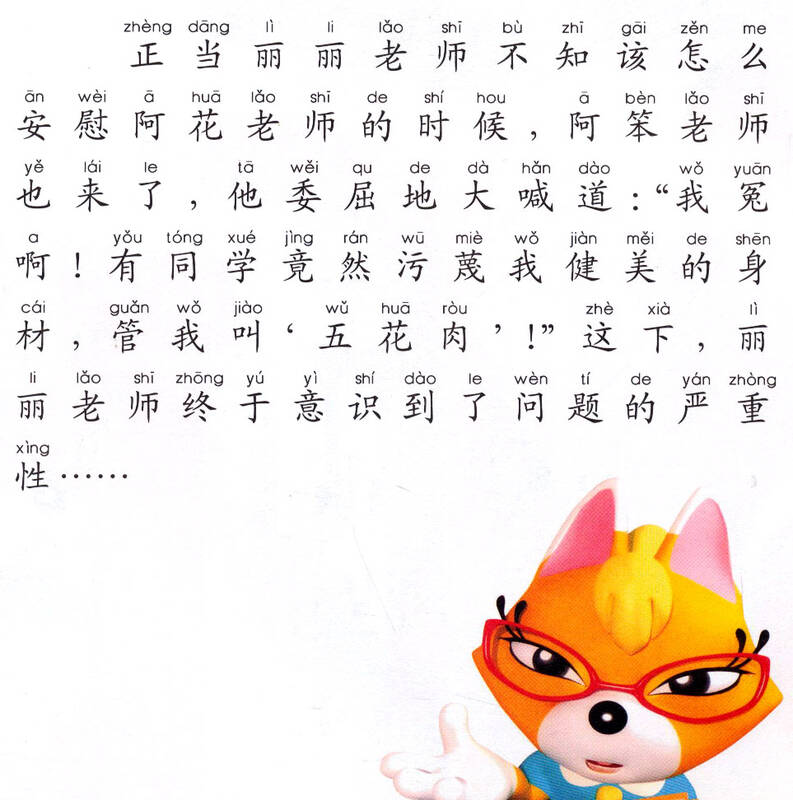 zhèng dāng lì li lǎo shī bù zhī gāi zěn me
正当丽丽老师不知该怎么
ān wèi ā huā lǎo shī de shí hou ā bèn lǎo shī
安慰阿花老师的时候，阿笨老师
yě lái le tā wěi qu de dà hǎn dào wǒ yuān
也来了，他委屈地大喊道：“我冤
a yǒu tóng xué jìng rán wū miè wǒ jiàn měi de shēn
啊！有同学竟然污蔑我健美的身
cái guǎn wǒ jiào wǔ huā ròu zhè xià lì
材，管我叫‘五花肉’！”这下，丽
li lǎo shī zhōng yú yì shí dào le wèn tí de yán zhòng
丽老师终于意识到了问题的严重
xìng
性……